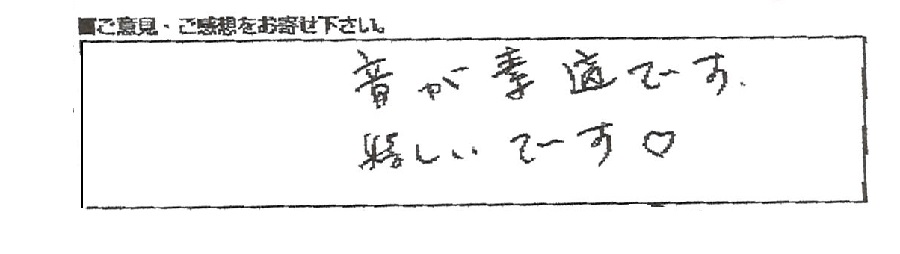 ■ご意見・ご感想をお寄せ下さい。
音が素適です.
嬉しいです♡